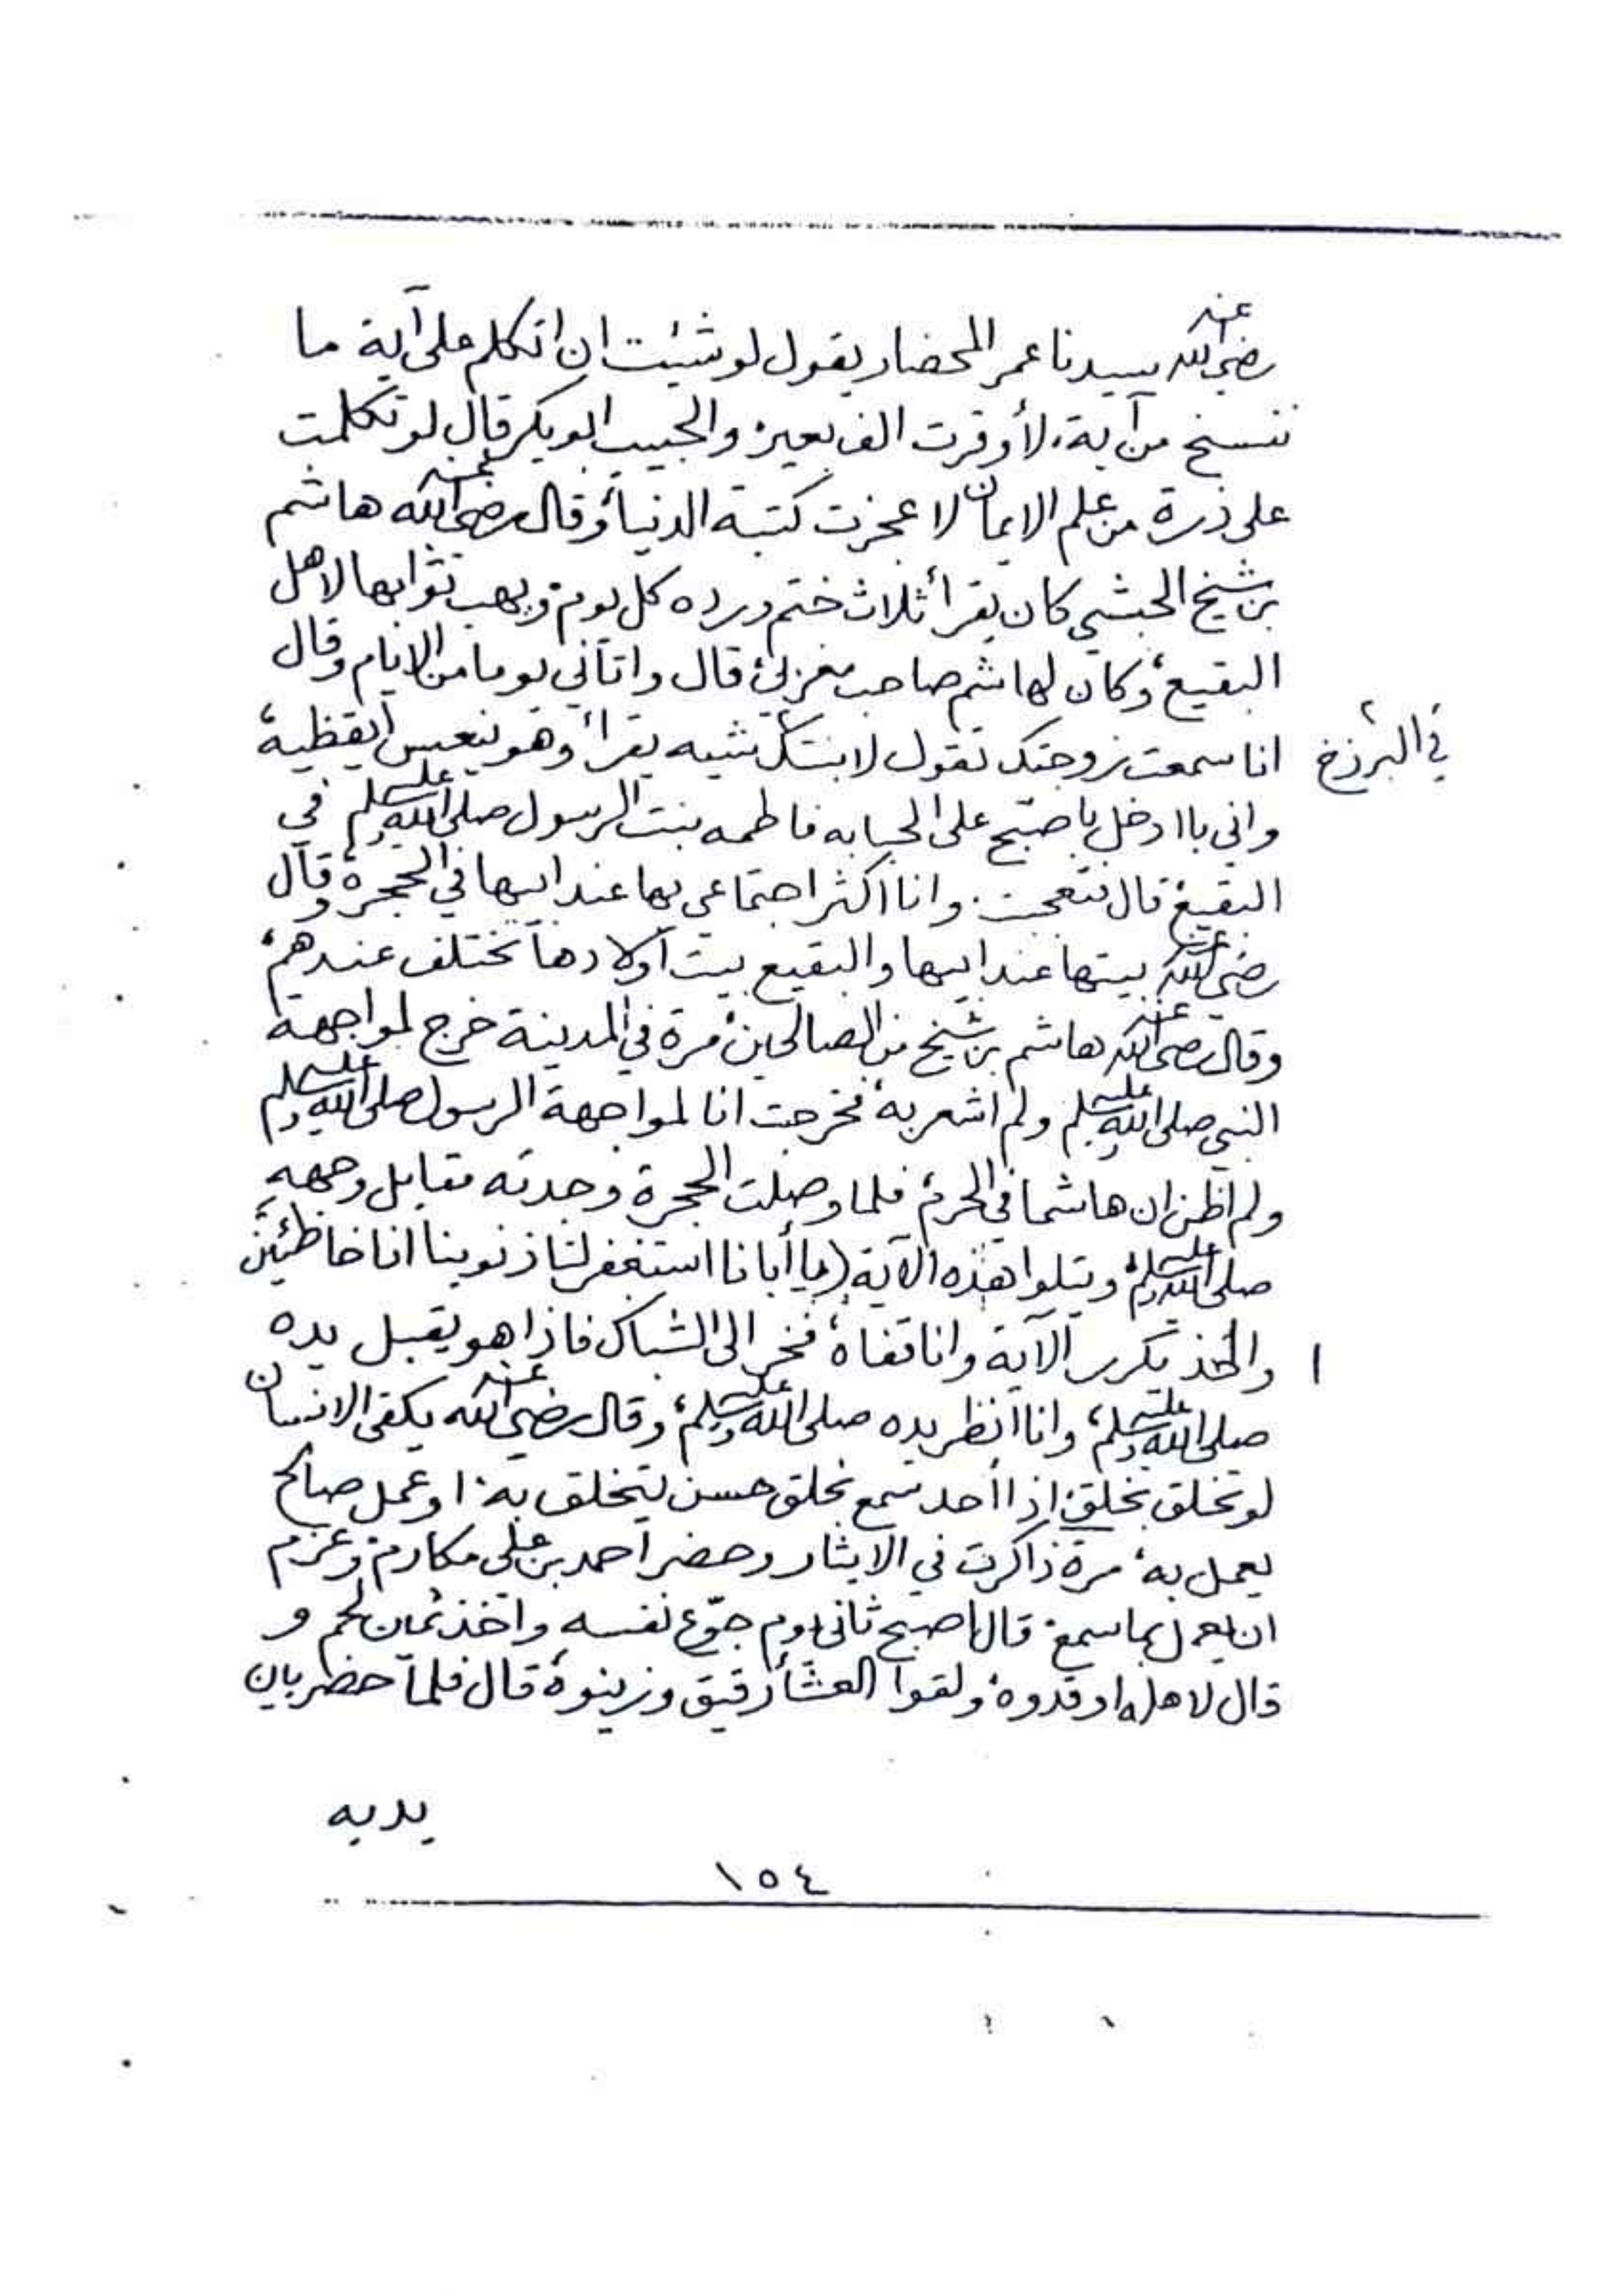 رضي الله عنه سيدنا عمر المحضار يقول لو شئت ان اتكلم على آية ما
ننسخ من آية، لأوقرت الف بعير، والحبيب ابو بكر قال لو تكلمت
على ذرة من علم الايمان لاعجزت كتبة الدنيا، وقال رضي الله عنه هاشم
بن شيخ الحبشي كان يقرأ ثلاث ختم ورده كل يوم، ويهب ثوابها لاهل
البقيع، وكان لهاشم صاحب مغربي، قال واتاني يوما من الايام وقال
انا سمعت زوجتك تقول لابنتك شيبه يقرأ وهو ينعس أيقظيه،
في البرزخ
واني باادخل باصبّح على الحبابه فاطمه بنت الرسول صلى الله عليه وسلم في
البقيع، قال فتعجبت، وانا اكثر اجتماعي بها عند ابيها في الحجرة، وقال
رضي الله عنه بيتها عند ابيها والبقيع بيت أولادها تختلف عندهم،
وقال رضي الله عنه هاشم بن شيخ من الصالحين، مرة في المدينة خرج لمواجهة
النبي صلى الله عليه وسلم ولم اشعر به، فخرجت انا لمواجهة الرسول صلى الله عليه وسلم
ولم اظن ان هاشما في الحرم، فلما وصلت الحجرة وجدته مقابل وجهه
صلى الله عليه وسلم، ويتلوا هذه الآية (يا أبانا استغفر لنا ذنوبنا انا خاطئين
وأخذ يكرر الآية وانا قفاه، فخر الى الشباك فاذا هو يقبل يده
صلى الله عليه وسلم، وانا أنظر يده صلى الله عليه وسلم، وقال رضي الله عنه يكفي الانسان
لو تخلق بخلق، اذا أحد سمع بخلق حسن يتخلق به، او عمل صالح
يعمل به، مرة ذاكرت في الايثار وحضر احمد بن علي مكارم، وعزم
ان يعمل بما سمع، قال اصبح ثاني يوم جوّع نفسه، واخذ ثمين لحم و
قال لاهله اوقدوه، ولقوا العشأ رقيق وزينوه، قال فلما حضر بين
يديه
١٥٤